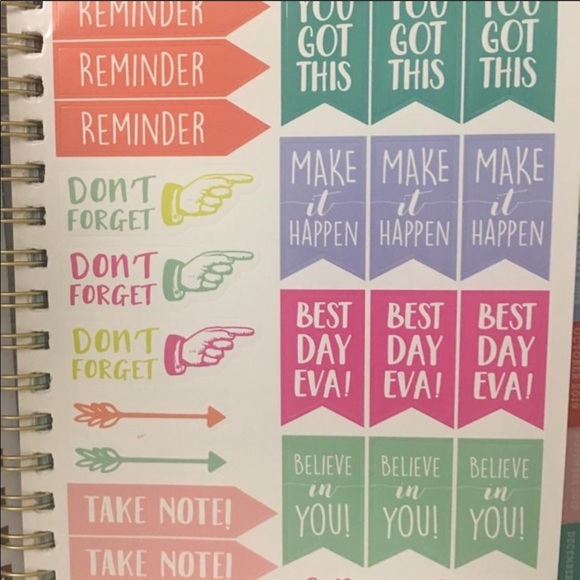 REMINDER
REMINDER
REMINDER
DON'T
FORGET
DON'T
FORGET
DON'T
FORGET
TAKE NOTE!
TAKE NOTE!
YOU YOU YOU
GOT GOT GOT
THIS THIS THIS
MAKE MAKE MAKE
it it it
HAPPEN HAPPEN HAPPEN
BEST BEST BEST
DAY DAY DAY
EVA! EVA! EVA!
BELIEVE BELIEVE BELIEVE
in in in
YOU! YOU! YOU!
DECEMBER